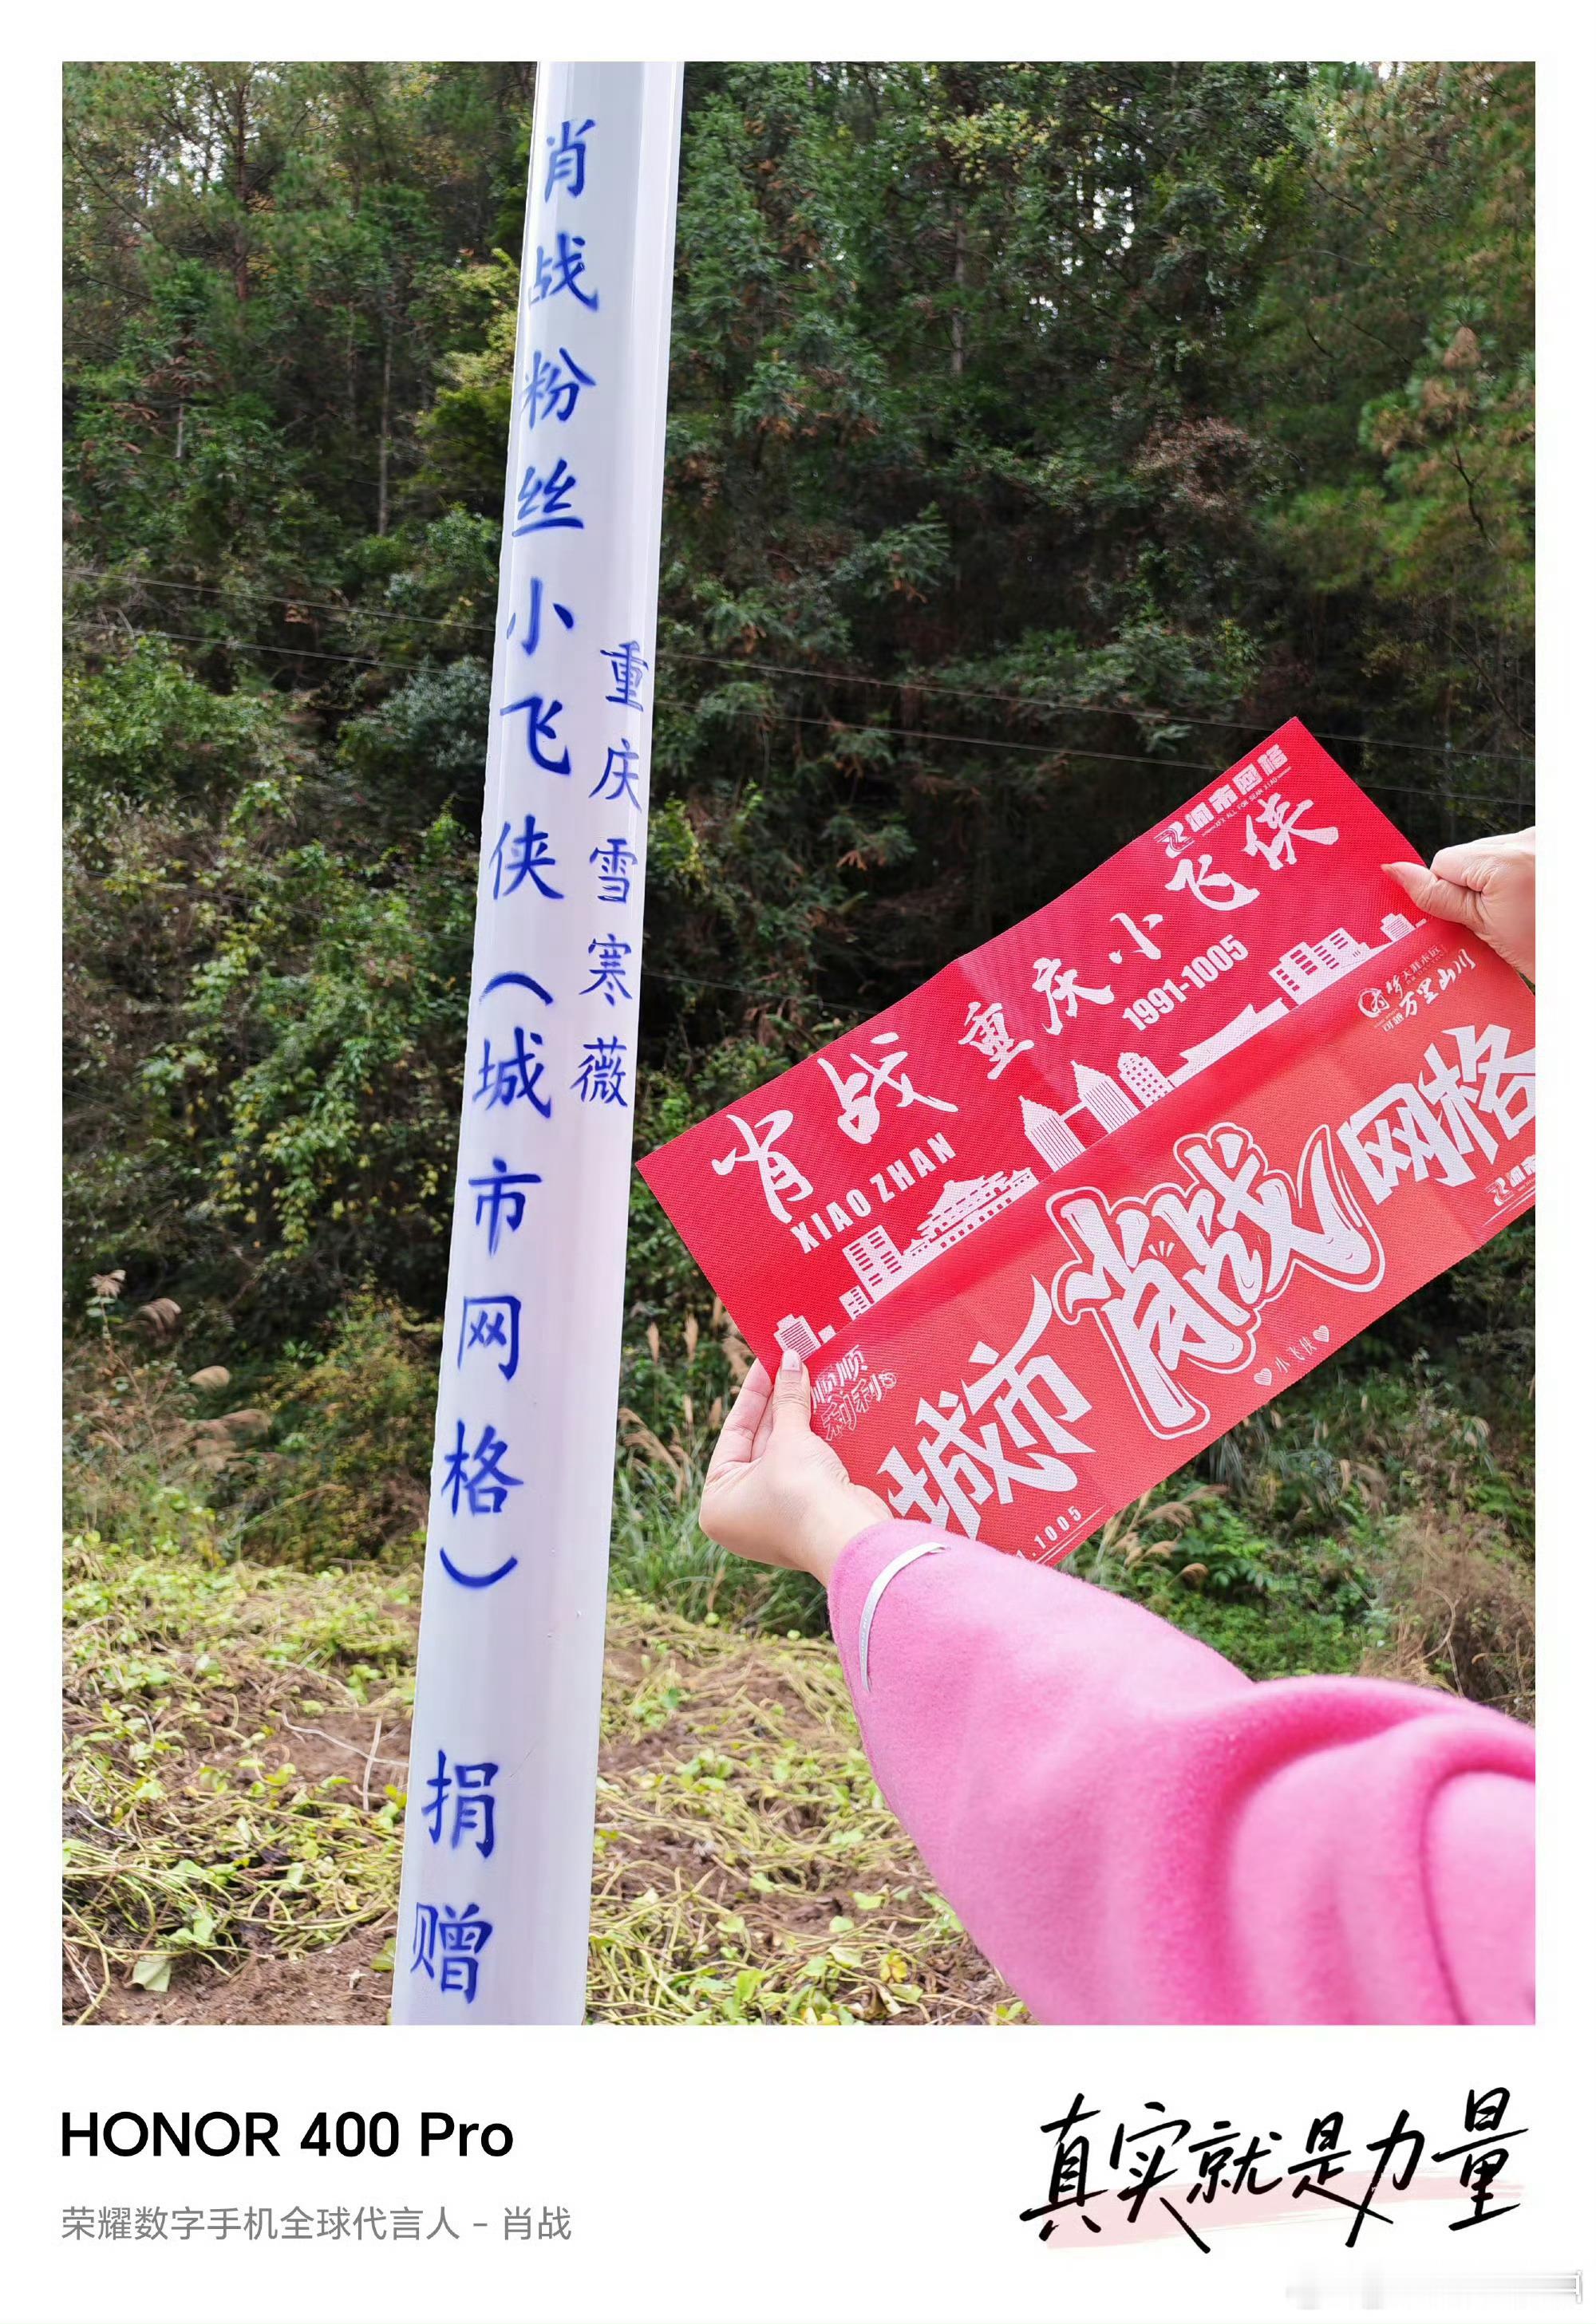 肖战粉丝小飞侠（城市网格） 捐赠
重庆雪寒薇
城市网格
肖战 重庆小飞侠
XIAO ZHAN
1991-1005
万里山川
顺顺利利
城市肖战网格
小飞侠
.1005
HONOR 400 Pro
荣耀数字手机全球代言人 - 肖战
真实就是力量